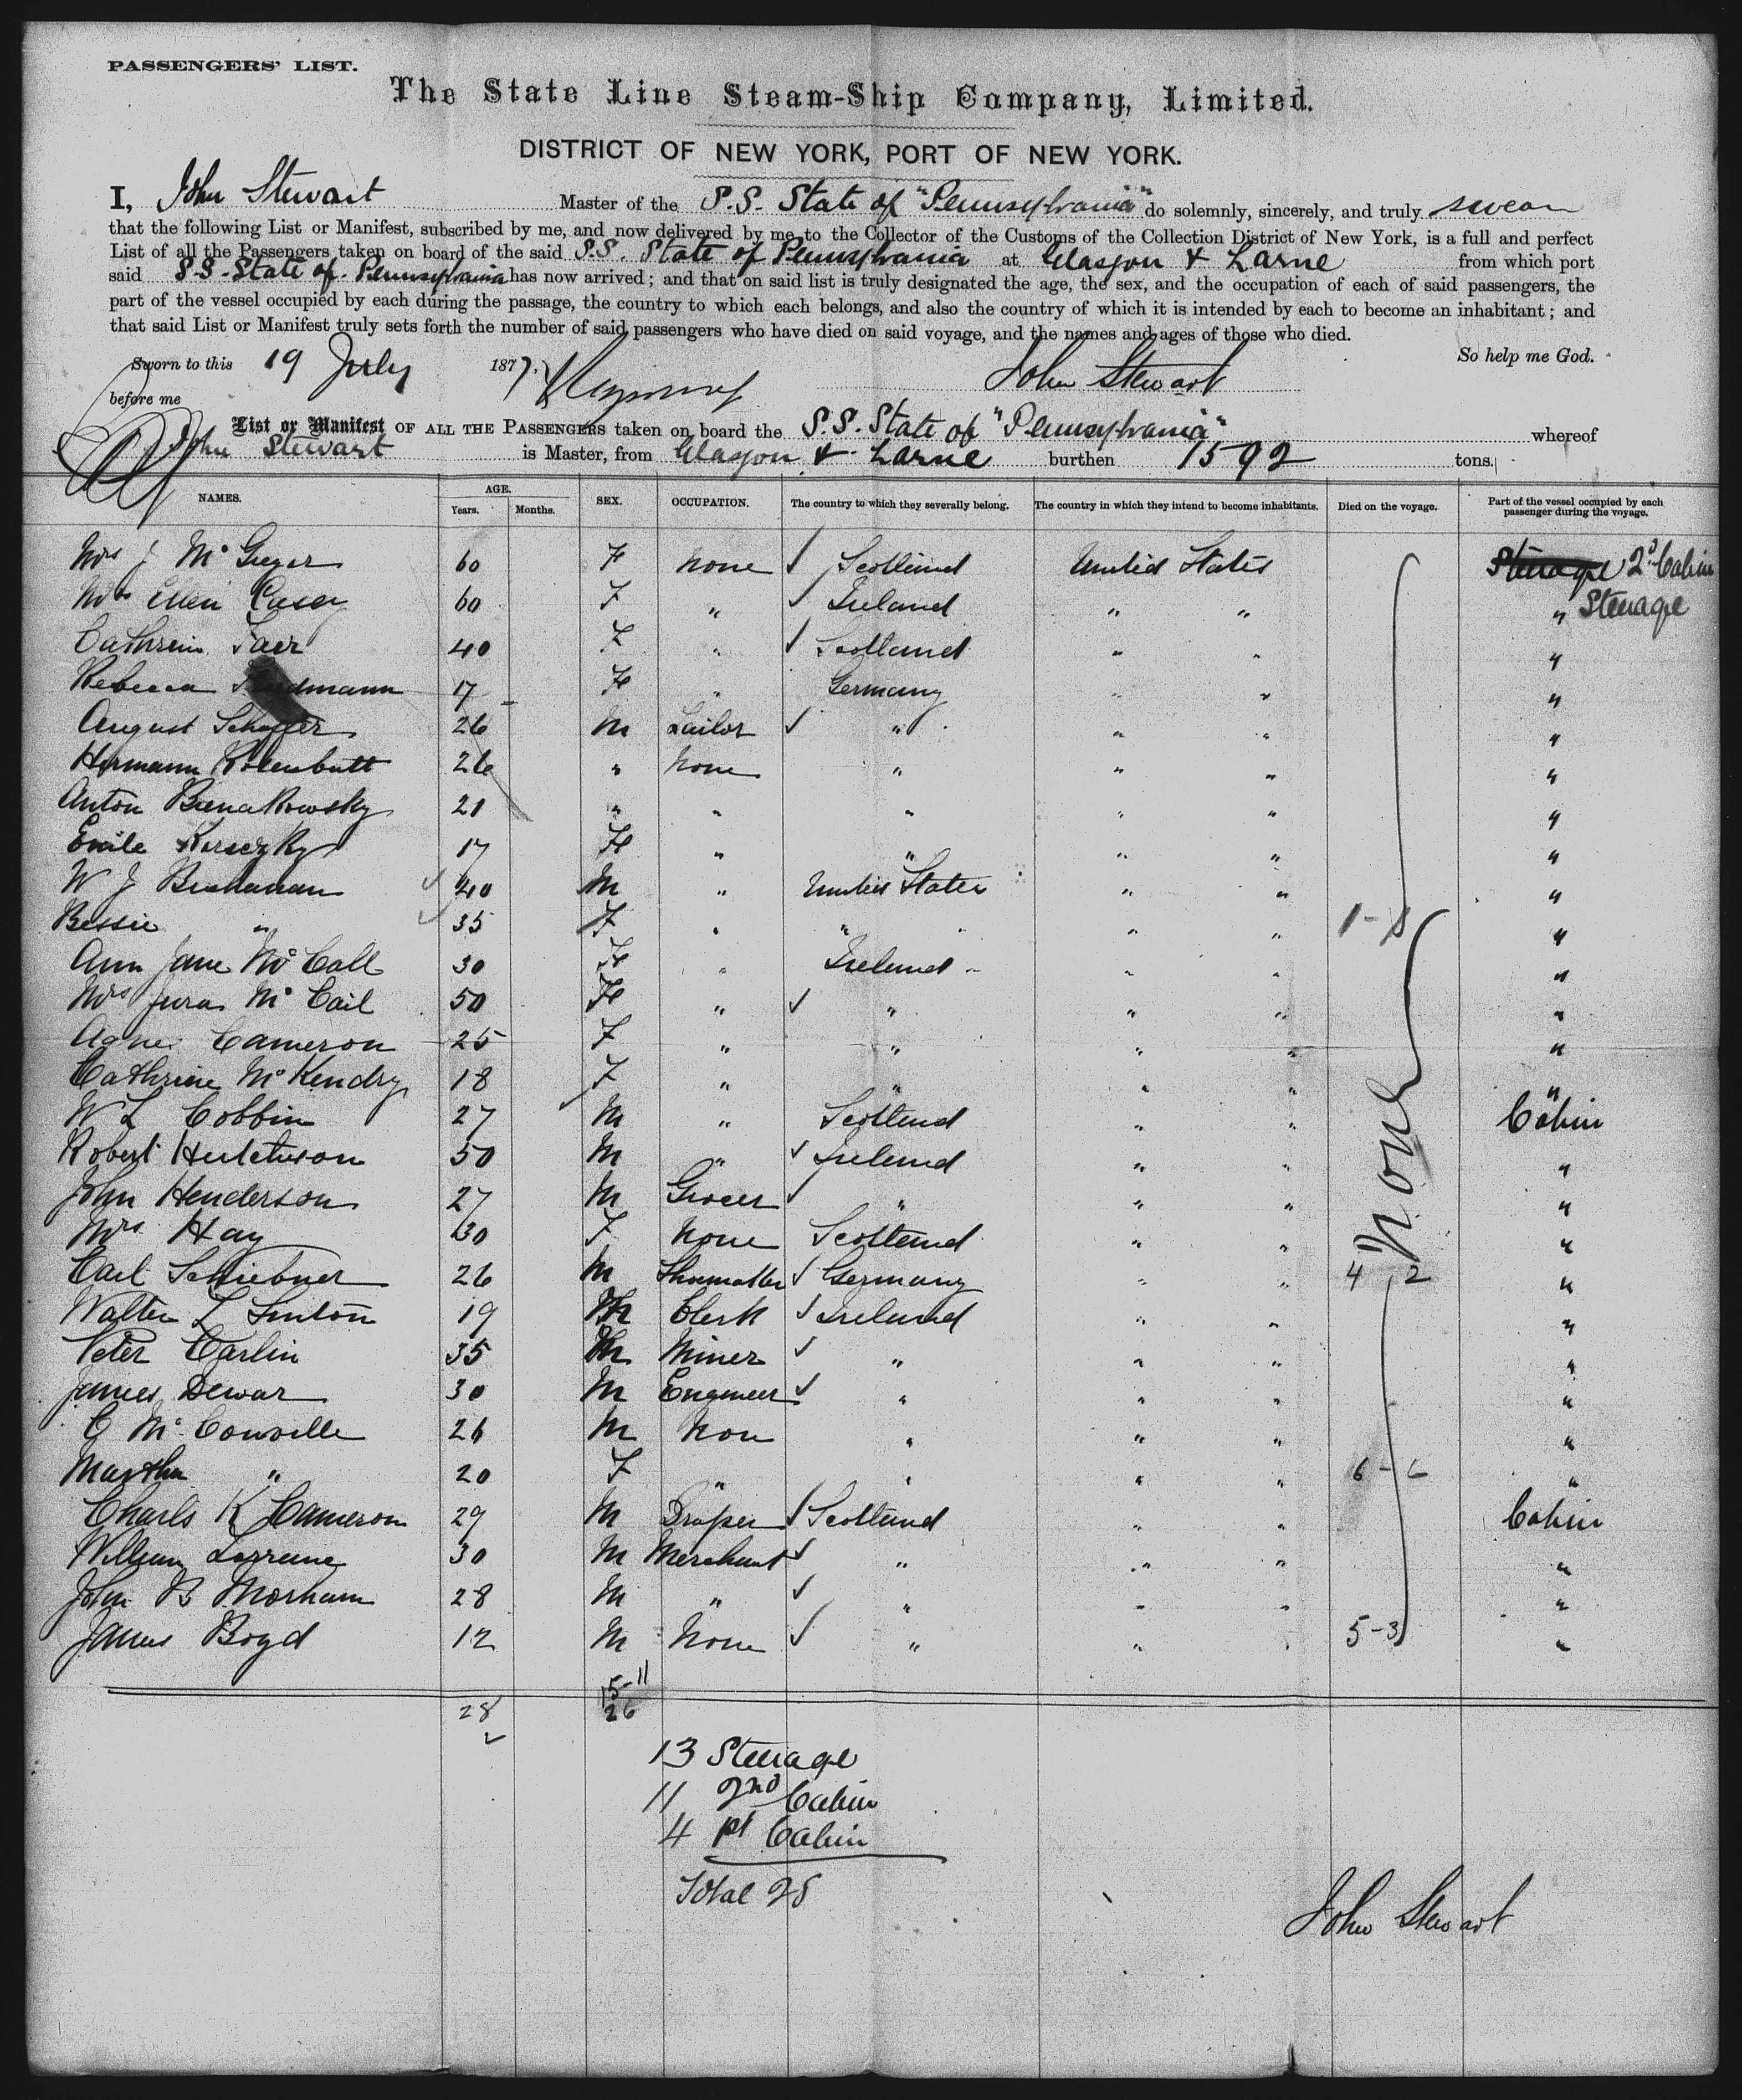 PASSENGERS' LIST.
The State Line Steam-Ship Company, Limited.
DISTRICT OF NEW YORK, PORT OF NEW YORK.
I, John Stewart Master of the S.S. State of "Pennsylvania" do solemnly, sincerely, and truly swear
that the following List or Manifest, subscribed by me, and now delivered by me to the Collector of the Customs of the Collection District of New York, is a full and perfect
List of all the Passengers taken on board of the said S.S. State of Pennsylvania at Glasgow & Larne from which port
said S.S. State of Pennsylvania has now arrived; and that on said list is truly designated the age, the sex, and the occupation of each of said passengers, the
part of the vessel occupied by each during the passage, the country to which each belongs, and also the country of which it is intended by each to become an inhabitant; and
that said List or Manifest truly sets forth the number of said passengers who have died on said voyage, and the names and ages of those who died.
Sworn to this 19 July 1877. John Stewart So help me God.
before me
List or Manifest OF ALL THE PASSENGERS taken on board the S.S. State of "Pennsylvania" whereof
John Stewart is Master, from Glasgow & Larne burthen 1592 tons.
NAMES. AGE. Years. Months. SEX. OCCUPATION. The country to which they severally belong. The country in which they intend to become inhabitants. Died on the voyage. Part of the vessel occupied by each passenger during the voyage.
Mrs J Mc Gregor 60 F None ✓ Scotland United States Steerage 2d Cabin
Mrs Ellen Casey 60 F " ✓ Ireland " " " Steerage
Cathrein 40 F " ✓ Scotland " " "
Rebecca 17 F " Germany " " "
August Schaffer 26 M Tailor ✓ " " " "
Hermann 26 " None " " " "
Anton 21 " " " " " "
Emile 17 F " " " " "
W J Buchanan ✓ 40 M " United States " " "
Bessie " ✓ 35 F " " " " 1-8 "
Ann Jane Mc Call 30 F " Ireland " " "
Mrs Mc Cail 50 F " ✓ " " " "
Agnes Cameron 25 F " " " " "
Cathrine Mc Kendry 18 F " " " " "
W L Cobbin 27 M " Scotland " " Cabin
Robert Hutchison 50 M " ✓ Ireland " " "
John Henderson 27 M Grocer ✓ " " " "
Mrs Hay 30 F None Scotland " " None "
Carl Schiebner 26 M Shoemaker ✓ Germany " " 4 2 "
Walter L Linton 19 M Clerk ✓ Ireland " " "
Peter Carlin 35 M Miner ✓ " " " "
James Dewar 30 M Engineer ✓ " " " "
C Mc Conville 26 M Non " " " "
Martha " 20 F " " " " 6-6 "
Charls K Cameron 29 M Draper ✓ Scotland " " Cabin
William Lorraine 30 M Merchant ✓ " " " "
John B Morham 28 M " ✓ " " " "
James Boyd 12 M None ✓ " " " 5-3 "
15-11
28 26
✓
13 Steerage
11 2nd Cabin
4 1st Cabin
Total 28
John Stewart